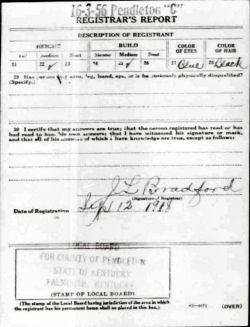 16-3-56 Pendleton "C"
REGISTRAR'S REPORT
DESCRIPTION OF REGISTRANT
HEIGHT BUILD COLOR OF EYES COLOR OF HAIR
Tall Medium Short Slender Medium Stout
21 22 ✓ 23 24 25 ✓ 26 27 Blue 28 Black
29 Has person lost arm, leg, hand, eye, or is he obviously physically disqualified?
(Specify.)
30 I certify that my answers are true; that the person registered has read or has
had read to him his own answers; that I have witnessed his signature or mark,
and that all of his answers of which I have knowledge are true, except as follows:
J L Bradford
(Signature of Registrar)
Date of Registration Sep 12 1918
LOCAL BOARD
FOR COUNTY OF PENDLETON
STATE OF KENTUCKY
FALMOUTH, KENTUCKY
(STAMP OF LOCAL BOARD)
(The stamp of the Local Board having jurisdiction of the area in which
the registrant has his permanent home shall be placed in this box.)
(OVER)